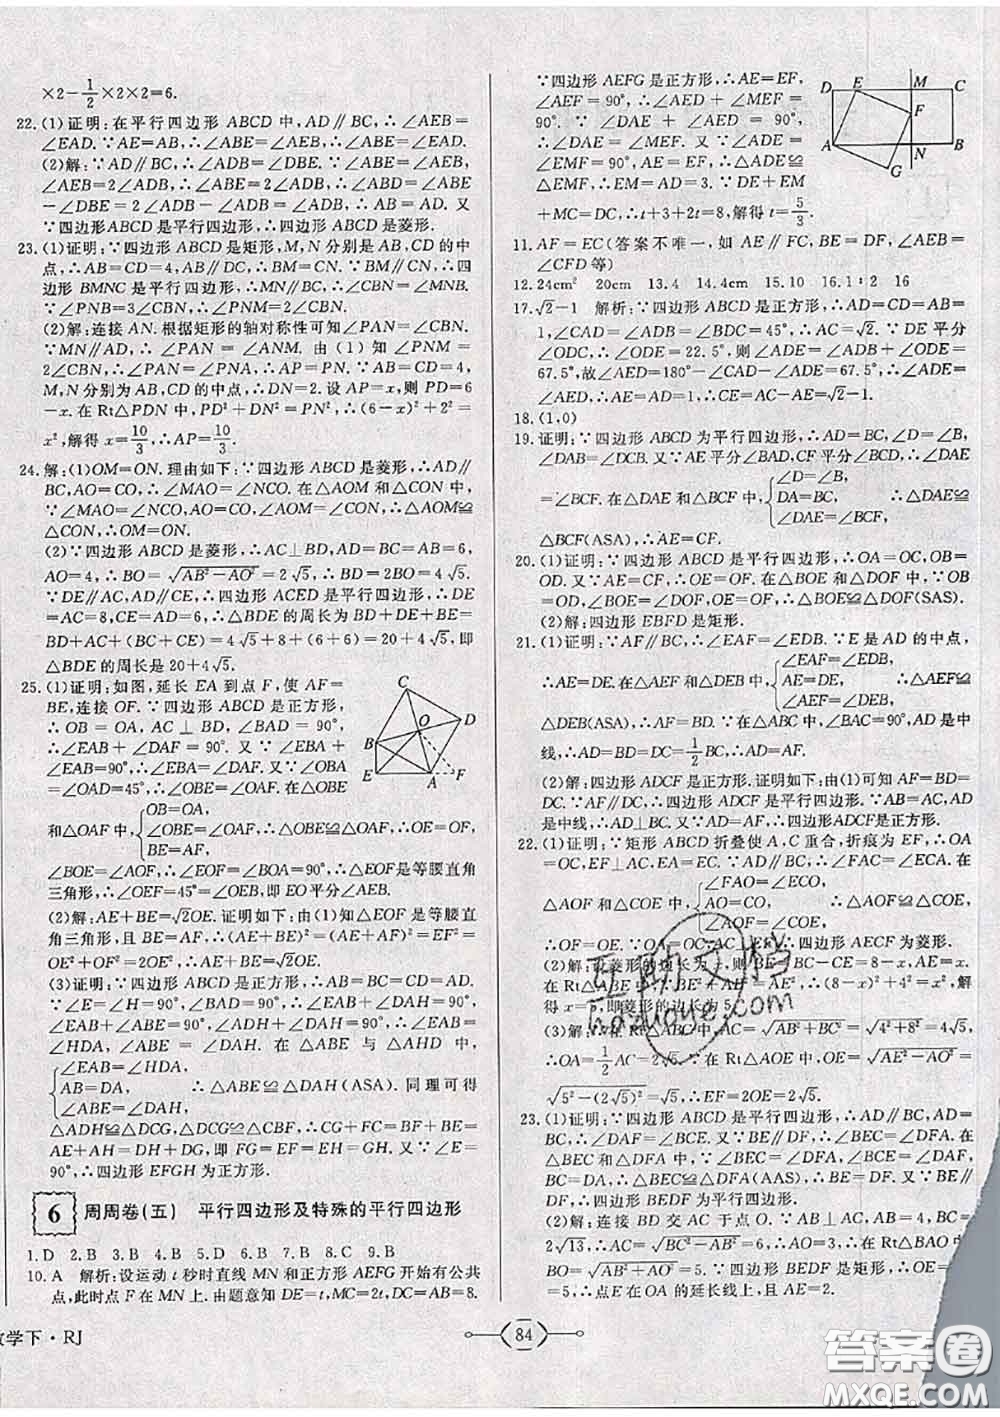 ×2-1/2×2×2=6.
22.(1)证明:在平行四边形ABCD中,AD∥BC,∴∠AEB=
∠EAD.∵AE=AB,∴∠ABE=∠AEB,∴∠ABE=∠EAD.
(2)解:∵AD∥BC,∴∠ADB=∠DBE.∵∠ABE=∠AEB,
∠AEB=2∠ADB,∴∠ABE=2∠ADB,∴∠ABD=∠ABE-
∠DBE=2∠ADB-∠ADB=∠ADB,∴AB=AD.又
∵四边形ABCD是平行四边形,∴四边形ABCD是菱形.
23.(1)证明:∵四边形ABCD是矩形,M,N分别是AB,CD的中
点,∴AB=CD=4,AB∥DC,∴BM=CN,∴BM∥CN,∴四边
形BMNC是平行四边形,∴MN∥BC,∴∠CBN=∠MNB.
∵∠PNB=3∠CBN,∴∠PNM=2∠CBN.
(2)解:连接AN.根据矩形的轴对称性可知∠PAN=∠CBN.
∵MN∥AD,∴∠PAN=∠ANM.由(1)知∠PNM=
2∠CBN,∴∠PAN=∠PNA,∴AP=PN.∵AB=CD=4,
M,N分别为AB,CD的中点,∴DN=2.设AP=x,则PD=6
-x.在Rt△PDN中,PD²+DN²=PN²,∴(6-x)²+2²=
x²,解得x=10/3,∴AP=10/3.
24.解:(1)OM=ON.理由如下:∵四边形ABCD是菱形,∴AD∥
BC,AO=CO,∴∠MAO=∠NCO.在△AOM和△CON中,
∵∠MAO=∠NCO,AO=CO,∠AOM=∠CON,∴△AOM≌
△CON,∴OM=ON.
(2)∵四边形ABCD是菱形,∴AC⊥BD,AD=BC=AB=6,
AO=4,∴BO=√(AB²-AO²)=2√5,∴BD=2OB=4√5.
∵DE∥AC,AD∥CE,∴四边形ACED是平行四边形,∴DE
=AC=8,CE=AD=6,∴△BDE的周长是BD+DE+BE=
BD+AC+(BC+CE)=4√5+8+(6+6)=20+4√5,即
△BDE的周长是20+4√5.
25.(1)证明:如图,延长EA到点F,使AF=
BE,连接OF.∵四边形ABCD是正方形,
∴OB=OA,AC⊥BD,∴∠BOA=90°,
∴∠EAB+∠DAF=90°.又∵∠EBA+
∠EAB=90°,∴∠EBA=∠DAF.又∵∠OBA
=∠OAD=45°,∴∠OBE=∠OAF.在△OBE
和△OAF中,{OB=OA,
∠OBE=∠OAF,∴△OBE≌△OAF,∴OE=OF,
BE=AF,
∠BOE=∠AOF,∴∠EOF=∠BOA=90°,∴△EOF是等腰直角
三角形,∴∠OEF=45°=∠OEB,即EO平分∠AEB.
(2)解:AE+BE=√2OE.证明如下:由(1)知△EOF是等腰直
角三角形,且BE=AF,∴(AE+BE)²=(AE+AF)²=EF²=
OE²+OF²=2OE²,∴AE+BE=√2OE.
(3)证明:∵四边形ABCD是正方形,∴AB=BC=CD=AD.
∵∠E=∠H=90°,∴∠EAB+∠ABE=90°.又∵∠EAB
+∠HAD=90°,∴∠ABE=∠HAD.同理可得∠EAB=
∠HDA,∠ABE=∠HAD.在△ABE与△ADH中,
{∠EAB=∠HDA,
AB=DA, ∴△ABE≌△DAH(ASA).同理可得
∠ABE=∠DAH,
△ADH≌△DCG,△DCG≌△CBF,∴CF=DG=AH=BE,
AE=DH=CG=BF,即FG=EF=EH=HG.又∵∠E=
90°,∴四边形EFGH为正方形.
6 周周卷(五) 平行四边形及特殊的平行四边形
1.D 2.B 3.B 4.C 5.D 6.B 7.B 8.C 9.B
10.A 解析:设运动t秒时直线MN和正方形AEFG开始有公共
点,此时点F在MN上.由题意知DE=t,MC=2t,DC=AB=8.
∵四边形AEFG是正方形,∴AE=EF,
∠AEF=90°,∴∠AED+∠MEF=
90°.∵∠DAE+∠AED=90°,
∴∠DAE=∠MEF.又∵∠ADE=
∠EMF=90°,AE=EF,∴△ADE≌
△EMF,∴EM=AD=3.∵DE+EM
+MC=DC,∴t+3+2t=8,解得t=5/3.
D E M C
F
A N B
G
11.AF=EC(答案不唯一,如AE∥FC,BE=DF,∠AEB=
∠CFD等)
12.24cm² 20cm 13.4 14.4cm 15.10 16.1:2 16
17.√2-1 解析:∵四边形ABCD是正方形,∴AD=AB=
1,∠CAD=∠ADB=∠BDC=45°,∴AC=√2.∵DE平分
∠ODC,∴∠ODE=22.5°,则∠ADE=∠ADB+∠ODE=
67.5°,故∠AED=180°-∠CAD-∠ADE=67.5°,∴∠ADE
=∠AED,∴AE=AD=1,∴CE=AC-AE=√2-1.
18.(1,0)
19.证明:∵四边形ABCD为平行四边形,∴AD=BC,∠D=∠B,
∠DAB=∠DCB.又∵AE平分∠BAD,CF平分∠BCD,∴∠DAE
=∠BCF.在△DAE和△BCF中,{∠D=∠B,
DA=BC, ∴△DAE≌
∠DAE=∠BCF,
△BCF(ASA),∴AE=CF.
20.(1)证明:∵四边形ABCD是平行四边形,∴OA=OC,OB=
OD.又∵AE=CF,∴OE=OF.在△BOE和△DOF中,∵OB=
OD,∠BOE=∠DOF,OE=OF,∴△BOE≌△DOF(SAS).
(2)解:四边形EBFD是矩形.
21.(1)证明:∵AF∥BC,∴∠EAF=∠EDB.∵E是AD的中点,
∴AE=DE.在△AEF和△DEB中,{∠EAF=∠EDB,
AE=DE, ∴△AEF≌
∠AEF=∠DEB,
△DEB(ASA),∴AF=BD.∵在△ABC中,∠BAC=90°,AD是中
线,∴AD=BD=DC=1/2BC,∴AD=AF.
(2)解:四边形ADCF是正方形.证明如下:由(1)可知AF=BD=
DC.∵AF∥DC,∴四边形ADCF是平行四边形.∵AB=AC,AD
是中线,∴AD⊥BC.又∵AD=AF,∴四边形ADCF是正方形.
22.(1)证明:∵矩形ABCD折叠使A,C重合,折痕为EF,∴OA
=OC,EF⊥AC,EA=EC.∵AD∥BC,∴∠FAC=∠ECA.在
△AOF和△COE中,{∠FAO=∠ECO,
AO=CO, ∴△AOF≌△COE,
∠AOF=∠COE,
∴OF=OE.∵OA=OC,AC⊥EF,∴四边形AECF为菱形.
(2)解:设菱形的边长为x,则BE=BC-CE=8-x,AE=x.
在Rt△ABE中,∵BE²+AB²=AE²,∴(8-x)²+4²=x²,解
得x=5,即菱形的边长为5.
(3)解:在Rt△ABC中,AC=√(AB²+BC²)=√(4²+8²)=4√5,
∴OA=1/2AC=2√5.∵在Rt△AOE中,OE=√(AE²-AO²)=
√(5²-(2√5)²)=√5,∴EF=2OE=2√5.
23.(1)证明:∵四边形ABCD是平行四边形,∴AD∥BC,AD=
BC,∴∠DAF=∠BCE.又∵BE∥DF,∴∠BEC=∠DFA.在
△BEC和△DFA中,∵∠BEC=∠DFA,∠BCE=∠DAF,BC=
DA,∴△BEC≌△DFA,∴BE=DF.又∵BE∥DF,∴四边形
BEDF为平行四边形.
(2)解:连接BD交AC于点O.∵AB⊥AC,AB=4,BC=
2√13,∴AC=√(BC²-AB²)=6,∴AO=3,∴在Rt△BAO中,
BO=√(AB²+AO²)=5.∵四边形BEDF是矩形,∴OE=
OB=5,∴点E在OA的延长线上,且AE=2.
数学下·RJ
84
答案圈
MXQE.COM